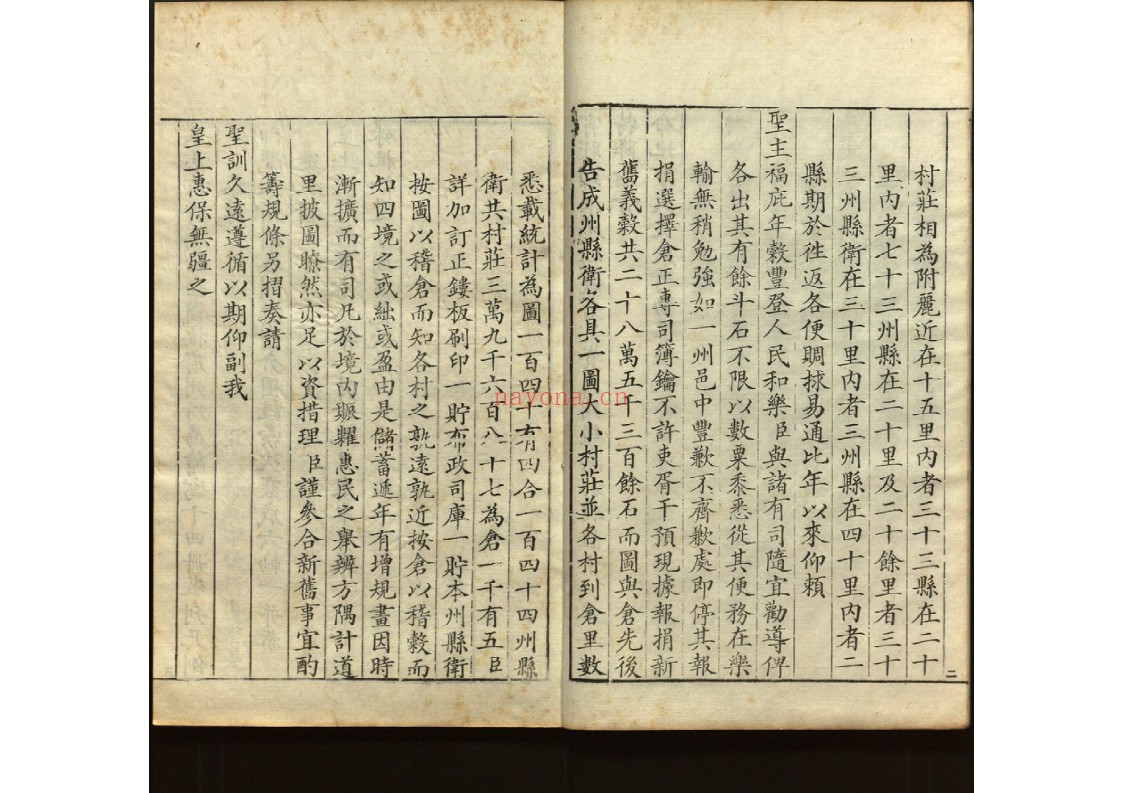 村莊相為附麗近在十五里内者三十三縣在二十
里内者七十三州縣在二十里及二十餘里者三十
三州縣衛在三十里内者三州縣在四十里内者二
縣期於徃返各便賙捄易通比年以來仰賴
聖主福庇年穀豐登人民和樂臣與諸有司隨宜勸導俾
各出其有餘斗石不限以數粟黍悉從其便務在樂
輸無稍勉強如一州邑中豐歉不齊歉處即停其報
捐選擇倉正專司簿鑰不許吏胥干預現據報捐新
舊義穀共二十八萬五千三百餘石而圖與倉先後
告成州縣衛各具一圖大小村莊並各村到倉里數
二
悉載統計為圖一百四十有四合一百四十四州縣
衛共村莊三萬九千六百八十七為倉一千有五臣
詳加訂正鏤板刷印一貯布政司庫一貯本州縣衛
按圖以稽倉而知各村之孰遠孰近按倉以稽穀而
知四境之或絀或盈由是儲蓄遞年有增規畫因時
漸擴而有司凡於境内賑糶惠民之舉辨方隅計道
里披圖瞭然亦足以資措理臣謹參合新舊事宜酌
籌規條另摺奏請
聖訓久遠遵循以期仰副我
皇上惠保無疆之
nayona.cn